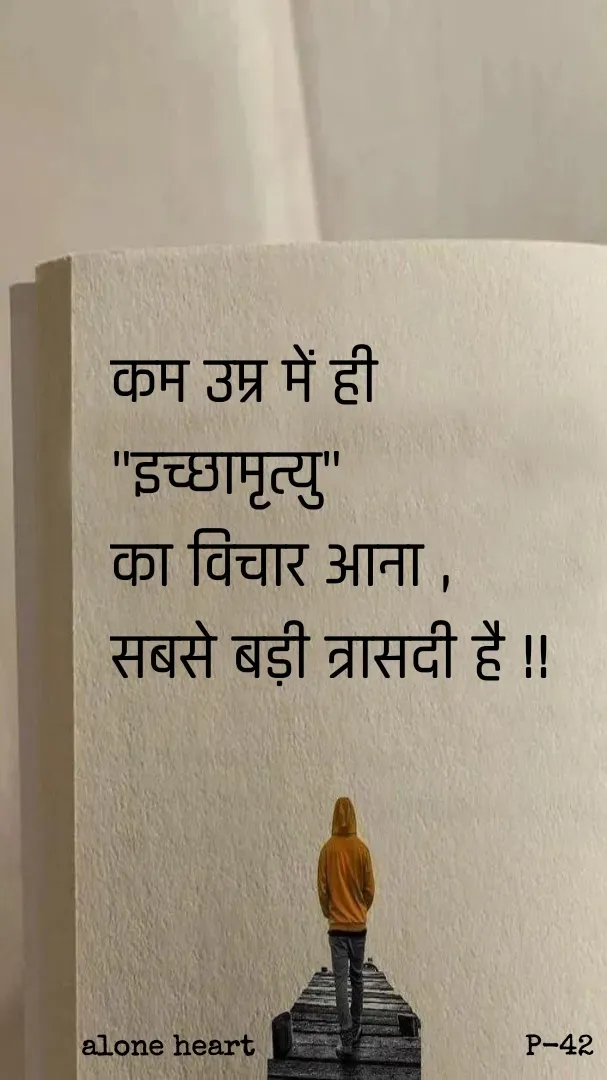 कम उम्र में ही
"इच्छामृत्यु"
का विचार आना ,
सबसे बड़ी त्रासदी है !!
alone heart
P-42